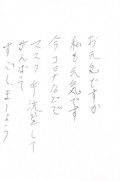 お元気ですか
私も元気です
今コロナなどで
マスク手洗をして
がんばって
すごしましょう